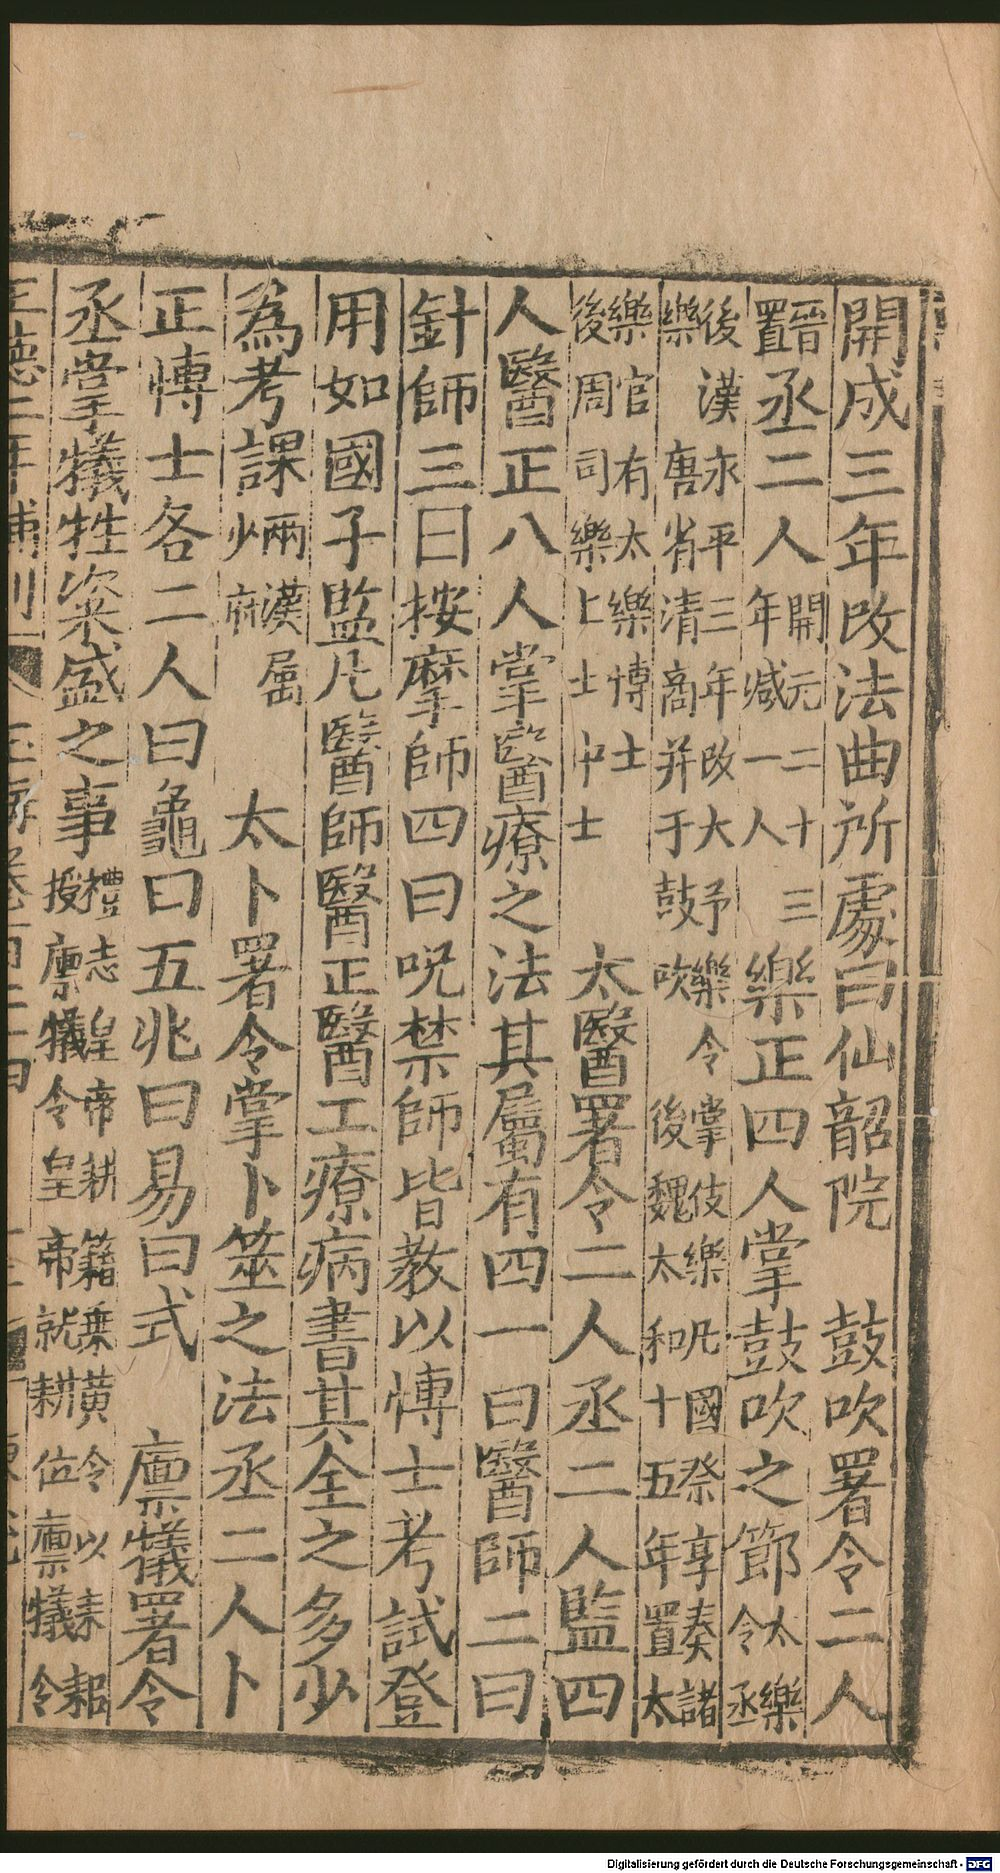 開成三年改法曲所處曰仙韶院　鼓吹署令二人
晉置丞二人開元二十三年減一人樂正四人掌鼓吹之節太樂令丞
後漢永平三年改大予樂令掌伎樂凡國祭享奏諸樂唐省清商并于鼓吹後魏太和十五年置太
樂官有太樂博士後周司樂上士中士　太醫署令二人丞二人監四
人醫正八人掌醫療之法其屬有四一曰醫師二曰
針師三曰按摩師四曰呪禁師皆教以博士考試登
用如國子監凡醫師醫正醫工療病書其全之多少
為考課兩漢屬少府　太卜署令掌卜筮之法丞二人卜
正博士各二人曰龜曰五兆曰易曰式　廩犧署令
丞掌犧牲粢盛之事禮志皇帝耕籍乗黃令以耒耜授廩犧令皇帝就耕位廩犧令
正德二年補刊
Digitalisierung gefördert durch die Deutsche Forschungsgemeinschaft - DFG